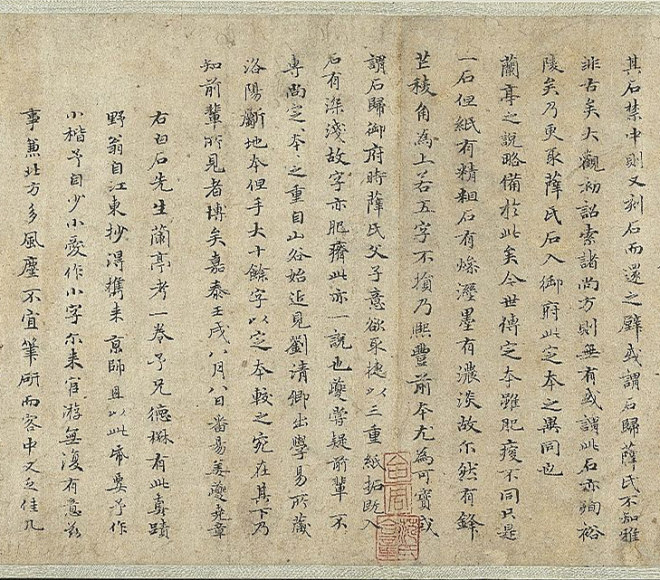 其石禁中則又刻石而還之壁或謂石歸薛氏不知雅
非古矣大觀初詔索諸尚方則無有或謂此石亦殉裕
陵矣乃更取薛氏石入御府此定本之異同也
蘭亭之說略備於此矣今世傳定本雖肥瘦不同只是
一石但紙有精粗石有燥溼墨有濃淡故尓然有鋒
芒稜角為上若五字不損乃熙豐前本尤為可寶或
謂石歸御府時薛氏父子意欲取捷以三重紙拓既入
石有深淺故字亦肥瘠此亦一說也夔嘗疑前輩不
專尚定本〻之重自山谷始近見劉清卿出學易所藏
洛陽斷地本但手大十餘字以定本較之宛在其下乃
知前輩所見者博矣嘉泰壬戌八月八日番昜姜夔堯章
右白石先生蘭亭考一卷予兄德楙有此真蹟
野翁自江東抄得攜来京師且以此帋要予作
小楷予自少小愛作小字尓来官游無復有意茲
事兼北方多風塵不宜筆研而客中又乏佳几